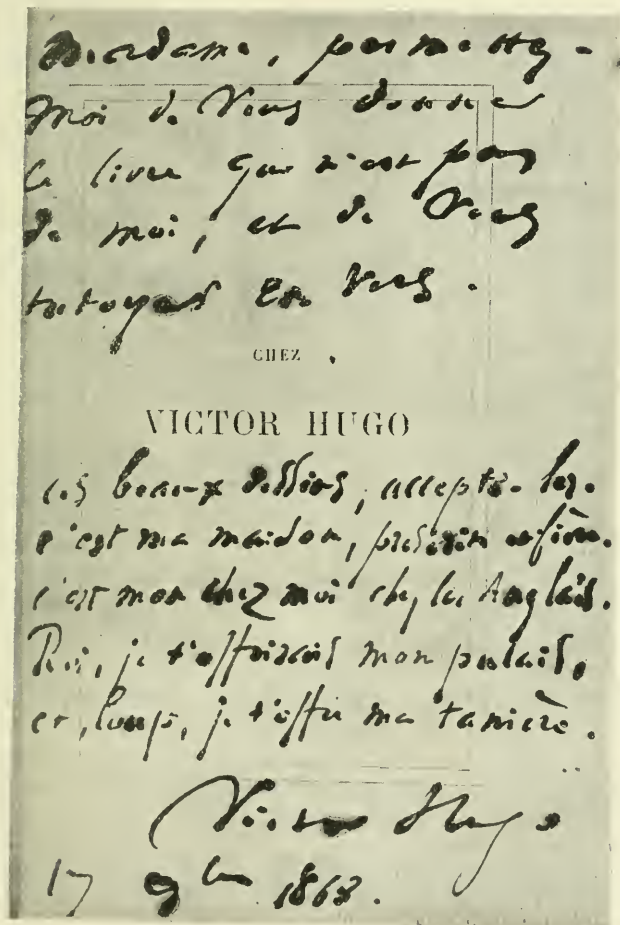 Madame, permettez-
moi de Vous donner
ce livre qui n'est pas
de moi, et de Vous
tutoyer en vers.
CHEZ
VICTOR HUGO
ces beaux dessins, accepte-les.
c'est ma maison, et fière.
c'est mon chez moi chez les Anglais.
Roi, je t'offrirais mon palais,
et, loup, je t'offre ma tanière.
Victor Hugo
17 9bre 1868.